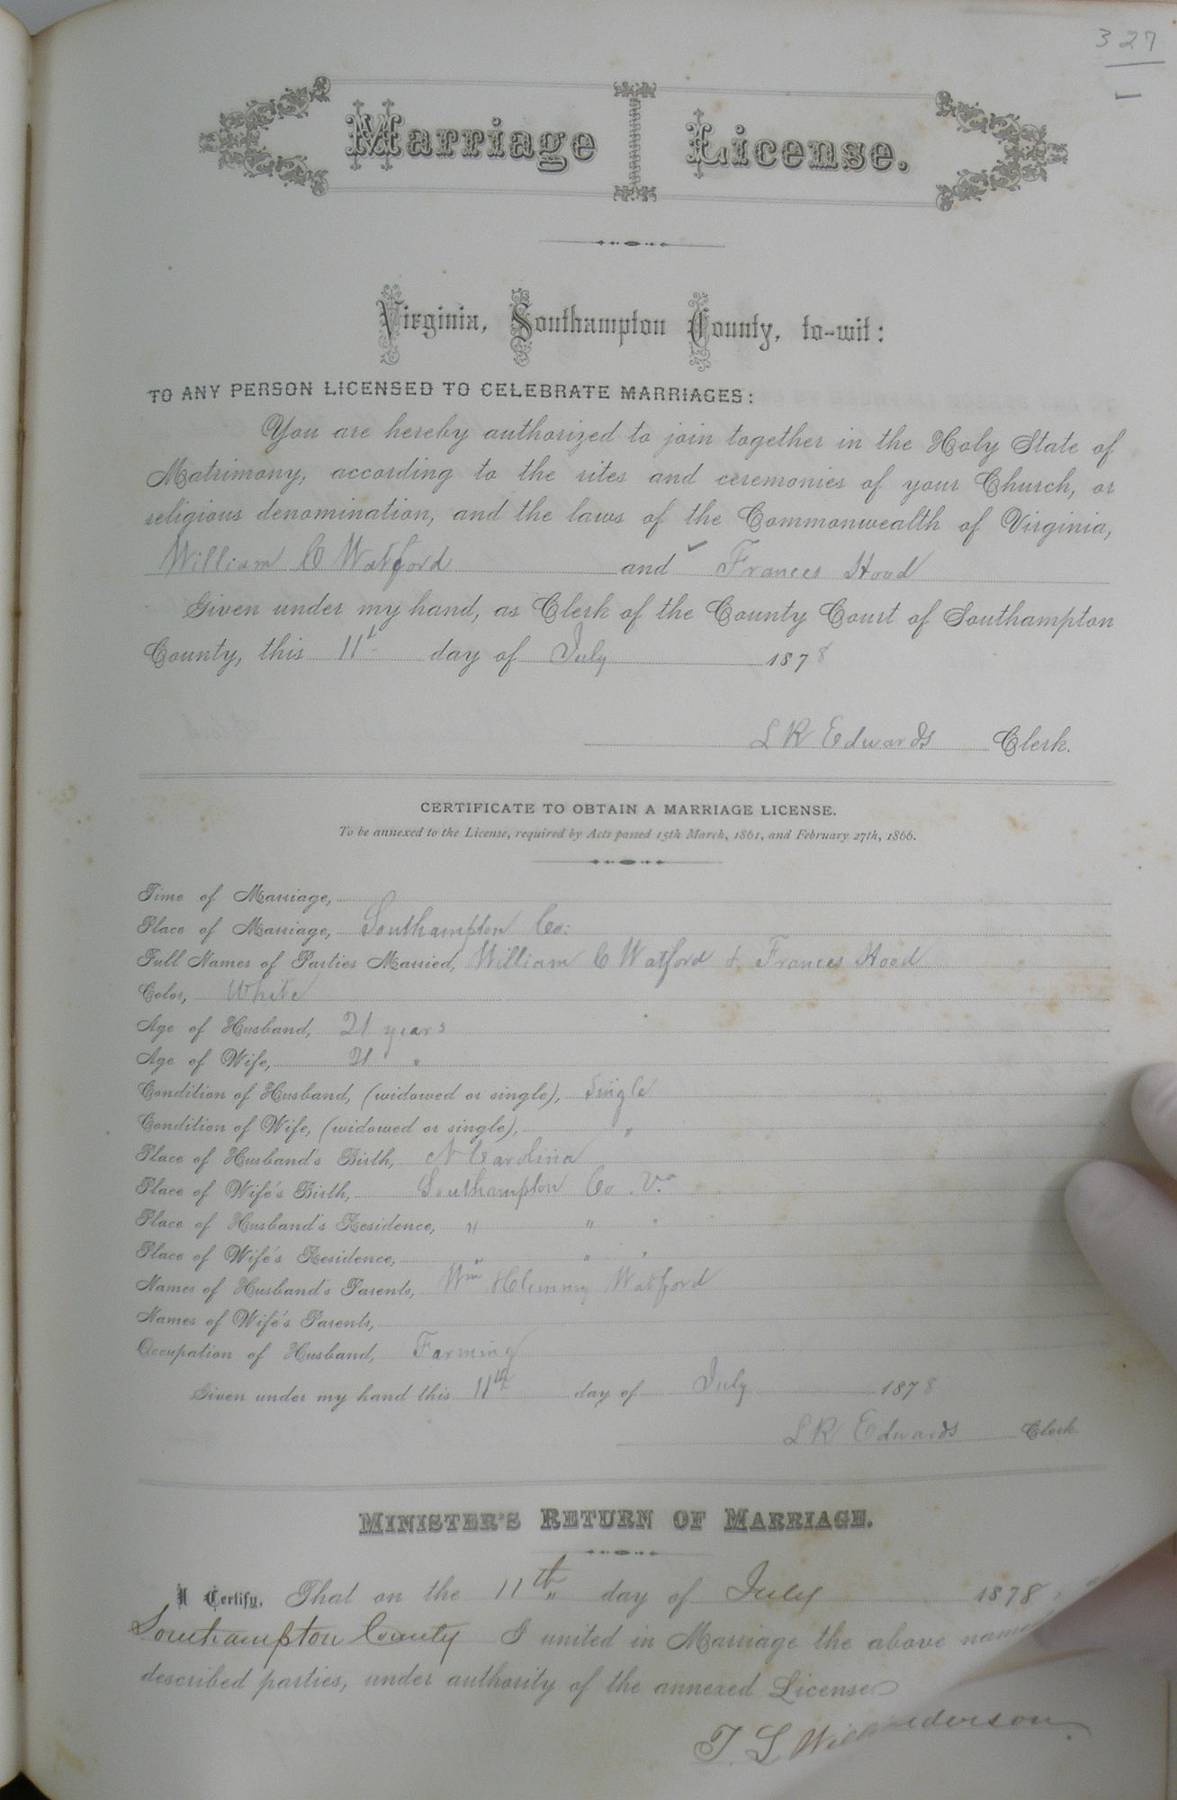 327
1
Marriage License.
Virginia, Southampton County, to-wit:
TO ANY PERSON LICENSED TO CELEBRATE MARRIAGES:
You are hereby authorized to join together in the Holy State of
Matrimony, according to the rites and ceremonies of your Church, or
religious denomination, and the laws of the Commonwealth of Virginia,
William C Watford and Frances Hood
Given under my hand, as Clerk of the County Court of Southampton
County, this 11th day of July 1878
L R Edwards Clerk.
CERTIFICATE TO OBTAIN A MARRIAGE LICENSE.
To be annexed to the License, required by Acts passed 15th March, 1861, and February 27th, 1866.
Time of Marriage,
Place of Marriage, Southampton Co:
Full Names of Parties Married, William C Watford & Frances Hood
Color, White
Age of Husband, 21 years
Age of Wife, 21 "
Condition of Husband, (widowed or single), Single
Condition of Wife, (widowed or single), "
Place of Husband's Birth, N Carolina
Place of Wife's Birth, Southampton Co. Va
Place of Husband's Residence, " " "
Place of Wife's Residence, " " "
Names of Husband's Parents, Wm Watford
Names of Wife's Parents,
Occupation of Husband, Farming
Given under my hand this 11th day of July 1878
L R Edwards Clerk
MINISTER'S RETURN OF MARRIAGE.
I Certify, That on the 11th day of July 1878,
Southampton County I united in Marriage the above name
described parties, under authority of the annexed License
T. L.